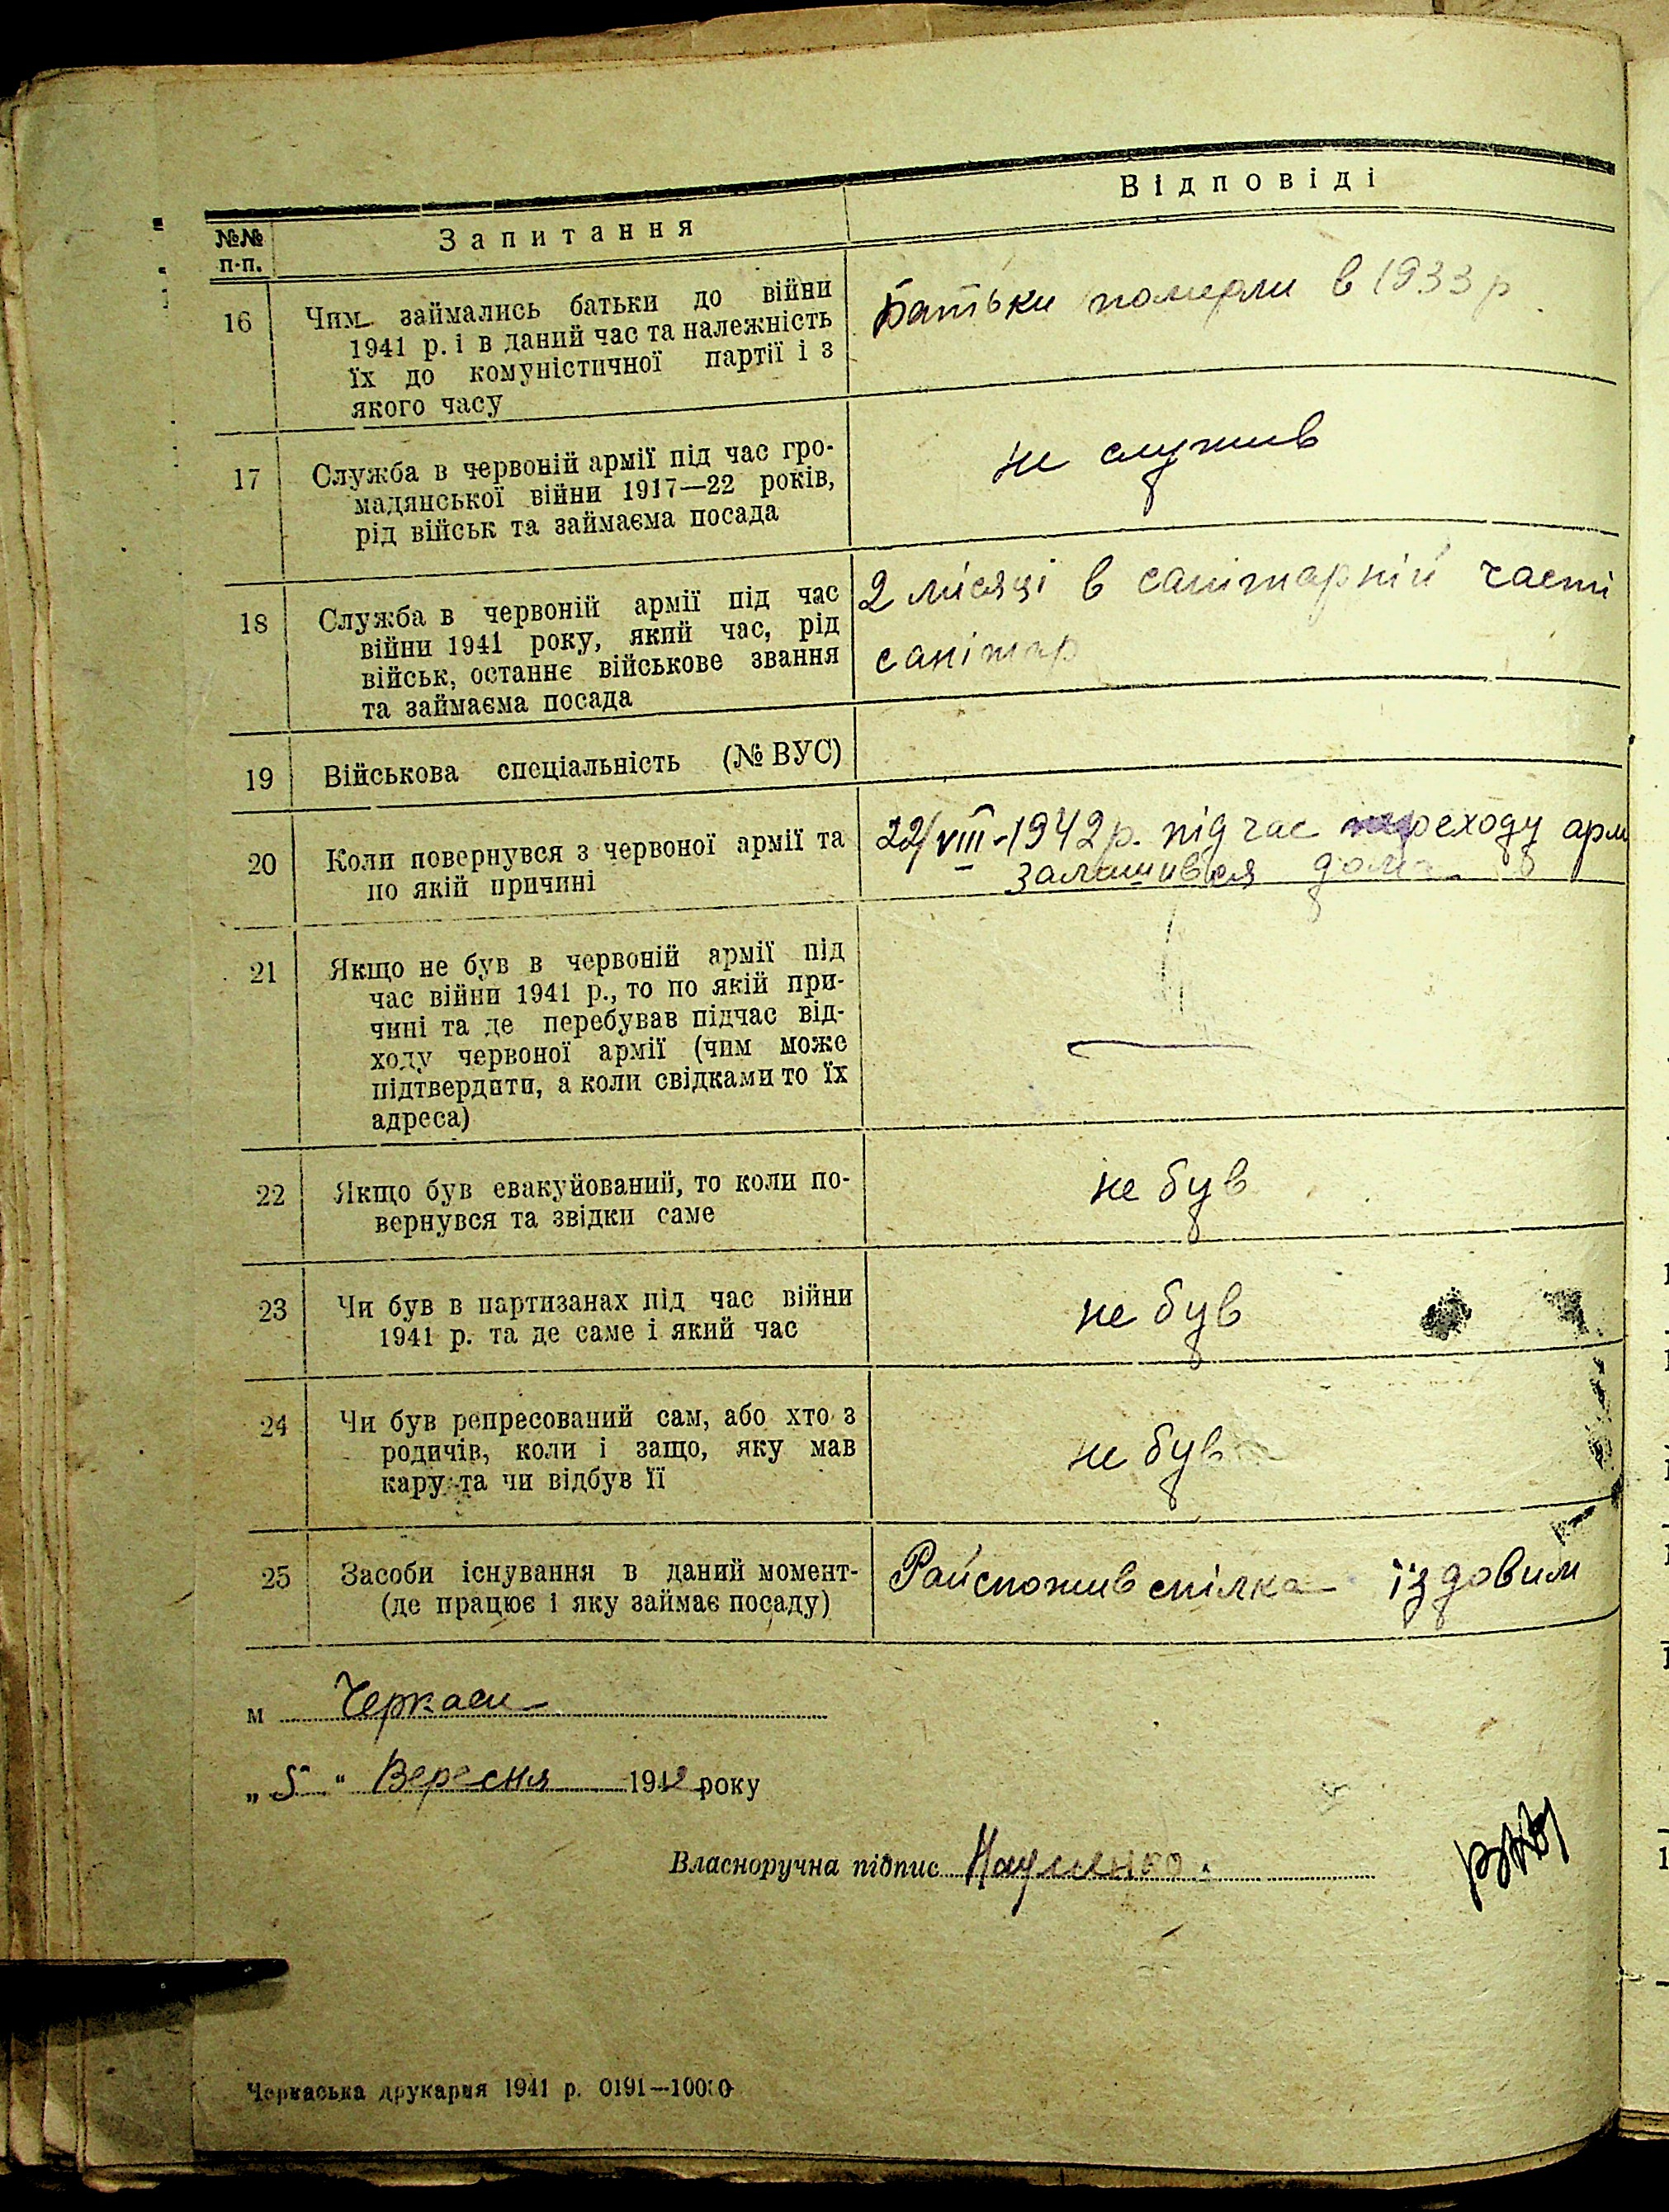 №№ п-п.
Запитання
Відповіді
16
Чим займались батьки до війни
1941 р. і в даний час та належність
їх до комуністичної партії і з
якого часу
Батьки померли в 1933 р
17
Служба в червоній армії під час гро-
мадянської війни 1917—22 років,
рід військ та займаєма посада
не служив
18
Служба в червоній армії під час
війни 1941 року, який час, рід
військ, останнє військове звання
та займаєма посада
2 місяці в санітарній часті
санітар
19
Військова спеціальність (№ ВУС)
20
Коли повернувся з червоної армії та
по якій причині
22/VIII-1942 р. під час переходу арм
залишився дома
21
Якщо не був в червоній армії під
час війни 1941 р., то по якій при-
чині та де перебував підчас від-
ходу червоної армії (чим може
підтвердити, а коли свідками то їх
адреса)
—
22
Якщо був евакуйований, то коли по-
вернувся та звідки саме
не був
23
Чи був в партизанах під час війни
1941 р. та де саме і який час
не був
24
Чи був репресований сам, або хто з
родичів, коли і защо, яку мав
кару та чи відбув її
не був
25
Засоби існування в даний момент-
(де працює і яку займає посаду)
Райспоживспілка їздовим
м Черкаси
„ 5 “ Вересня 1942 року
Власноручна підпис Науменко
Черкаська друкарня 1941 р. 0191—10000